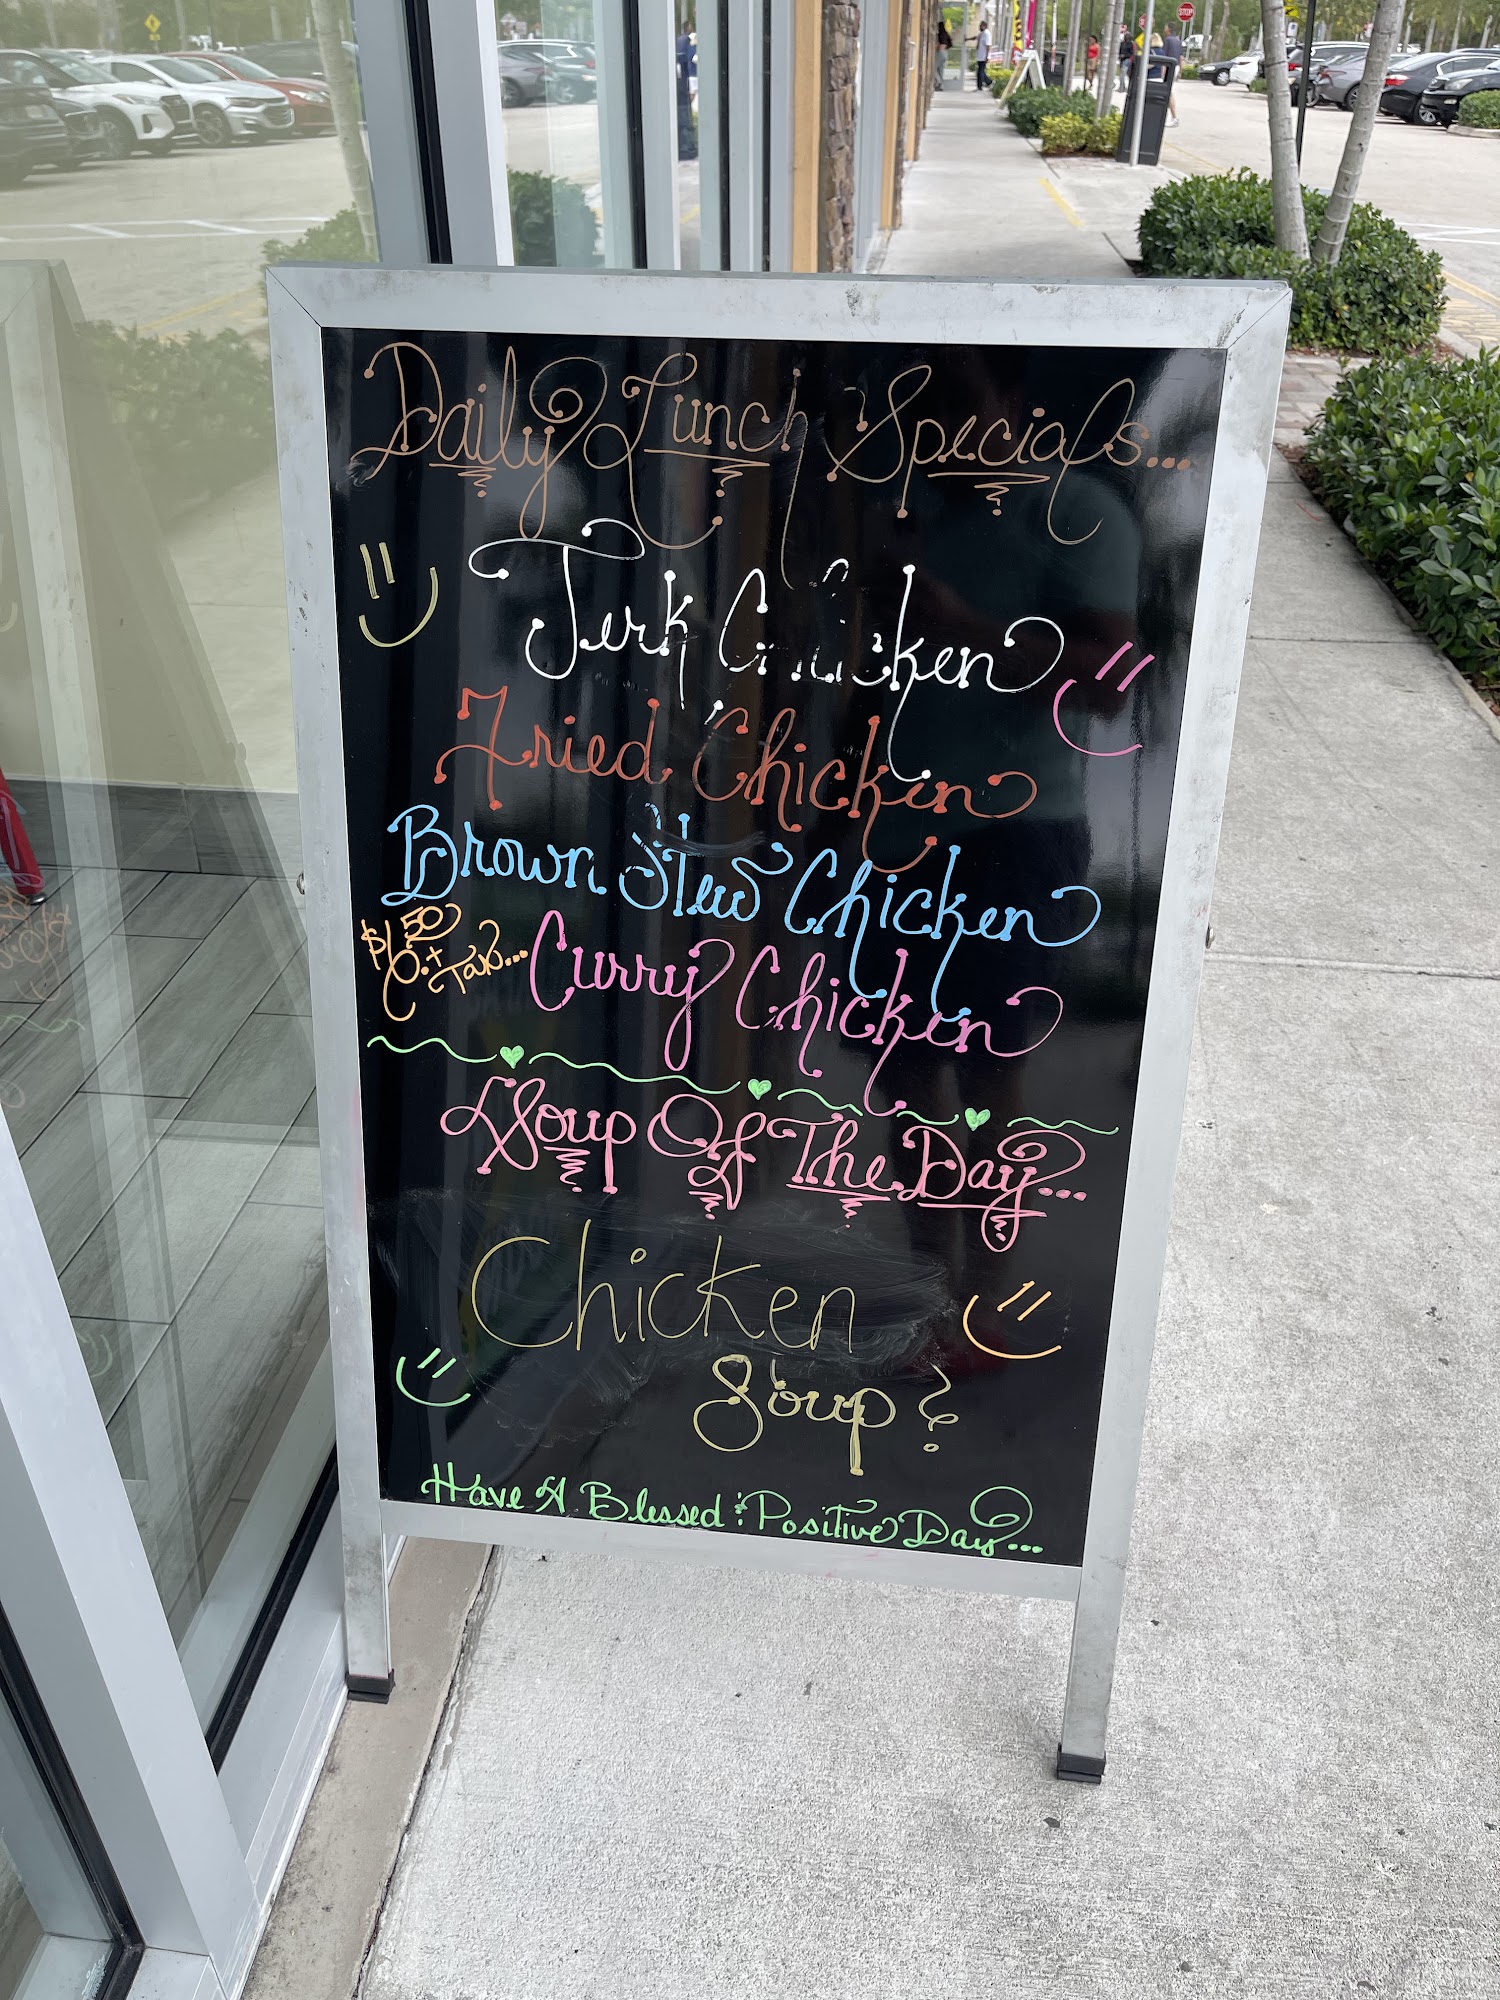 STOP
Daily Lunch Specials...
Jerk Chicken
Fried Chicken
Brown Stew Chicken
$10.50 + Tax...
Curry Chicken
Soup Of The Day...
Chicken
Soup ?
Have A Blessed & Positive Day...